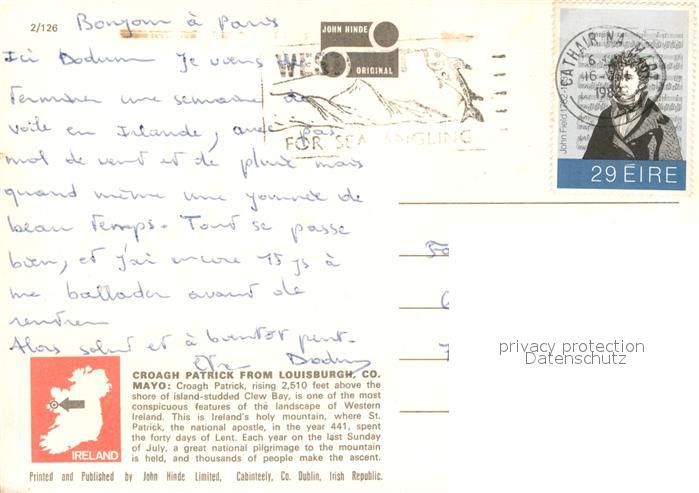 2/126
Bonjour à Paris
Ici Dodum Je viens de
terminer une semaine de
voile en Irlande, avec pas
mal de vent et de pluie mais
quand même une journée de
beau temps. Tout se passe
bien, et j'ai encore 15 js à
me ballader avant de
rentrer
Alors salut et à bientôt peut-
être Dodum
JOHN HINDE
ORIGINAL
WEST
FOR SEA ANGLING
CATHAIR NA MART
16
1982
John Field 1782-1837
29 ÉIRE
privacy protection
Datenschutz
IRELAND
CROAGH PATRICK FROM LOUISBURGH, CO.
MAYO: Croagh Patrick, rising 2,510 feet above the
shore of island-studded Clew Bay, is one of the most
conspicuous features of the landscape of Western
Ireland. This is Ireland's holy mountain, where St.
Patrick, the national apostle, in the year 441, spent
the forty days of Lent. Each year on the last Sunday
of July, a great national pilgrimage to the mountain
is held, and thousands of people make the ascent.
Printed and Published by John Hinde Limited, Cabinteely, Co. Dublin, Irish Republic.